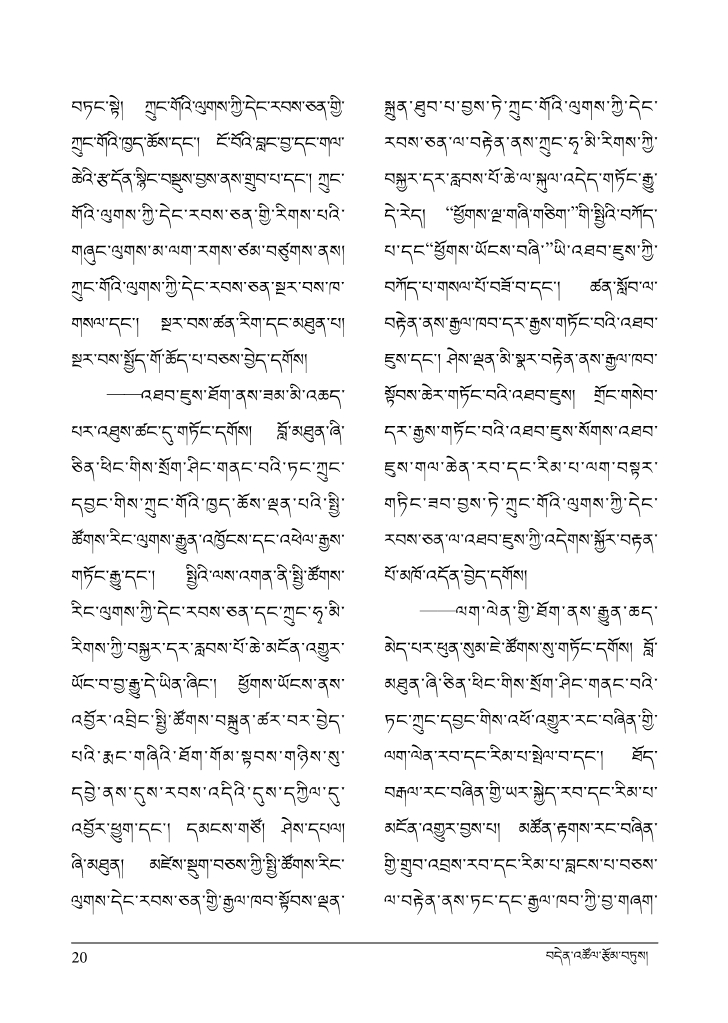 བཏང་སྟེ།  ཀྲུང་གོའི་ལུགས་ཀྱི་དེང་རབས་ཅན་གྱི་
ཀྲུང་གོའི་ཁྱད་ཆོས་དང་།  ངོ་བོའི་བླང་བྱ་དང་གལ་
ཆེའི་རྩ་དོན་སྙིང་བསྡུས་བྱས་ནས་གྲུབ་པ་དང་། ཀྲུང་
གོའི་ལུགས་ཀྱི་དེང་རབས་ཅན་གྱི་རིགས་པའི་
གཞུང་ལུགས་མ་ལག་རགས་ཙམ་བཙུགས་ནས།
ཀྲུང་གོའི་ལུགས་ཀྱི་དེང་རབས་ཅན་སྔར་བས་ཁ་
གསལ་དང་།  སྔར་བས་ཚན་རིག་དང་མཐུན་པ།
སྔར་བས་སྤྱོད་གོ་ཆོད་པ་བཅས་བྱེད་དགོས།
——འཐབ་ཇུས་ཐོག་ནས་ཟམ་མི་འཆད་
པར་འཐུས་ཚང་དུ་གཏོང་དགོས།  བློ་མཐུན་ཞི་
ཅིན་ཕིང་གིས་སྲོག་ཤིང་གནང་བའི་ཏང་ཀྲུང་
དབྱང་གིས་ཀྲུང་གོའི་ཁྱད་ཆོས་ལྡན་པའི་སྤྱི་
ཚོགས་རིང་ལུགས་རྒྱུན་འཁྱོངས་དང་འཕེལ་རྒྱས་
གཏོང་རྒྱུ་དང་།  སྤྱིའི་ལས་འགན་ནི་སྤྱི་ཚོགས་
རིང་ལུགས་ཀྱི་དེང་རབས་ཅན་དང་ཀྲུང་ཧྭ་མི་
རིགས་ཀྱི་བསྐྱར་དར་རླབས་པོ་ཆེ་མངོན་འགྱུར་
ཡོང་བ་བྱ་རྒྱུ་དེ་ཡིན་ཞིང་།  ཕྱོགས་ཡོངས་ནས་
འབྱོར་འབྲིང་སྤྱི་ཚོགས་བསྐྲུན་ཚར་བར་བྱེད་
པའི་རྨང་གཞིའི་ཐོག་གོམ་སྟབས་གཉིས་སུ་
དབྱེ་ནས་དུས་རབས་འདིའི་དུས་དཀྱིལ་དུ་
འབྱོར་ཕྱུག་དང་།  དམངས་གཙོ།  ཤེས་དཔལ།
ཞི་མཐུན།  མཛེས་སྡུག་བཅས་ཀྱི་སྤྱི་ཚོགས་རིང་
ལུགས་དེང་རབས་ཅན་གྱི་རྒྱལ་ཁབ་སྟོབས་ལྡན་
སྐྲུན་ཐུབ་པ་བྱས་ཏེ་ཀྲུང་གོའི་ལུགས་ཀྱི་དེང་
རབས་ཅན་ལ་བརྟེན་ནས་ཀྲུང་ཧྭ་མི་རིགས་ཀྱི་
བསྐྱར་དར་རླབས་པོ་ཆེ་ལ་སྐུལ་འདེད་གཏོང་རྒྱུ་
དེ་རེད།  “ཕྱོགས་ལྔ་གཞི་གཅིག”གི་སྤྱིའི་བཀོད་
པ་དང་“ཕྱོགས་ཡོངས་བཞི་”ཡི་འཐབ་ཇུས་ཀྱི་
བཀོད་པ་གསལ་པོ་བཟོ་བ་དང་།  ཚན་སློབ་ལ་
བརྟེན་ནས་རྒྱལ་ཁབ་དར་རྒྱས་གཏོང་བའི་འཐབ་
ཇུས་དང་། ཤེས་ལྡན་མི་སྣར་བརྟེན་ནས་རྒྱལ་ཁབ་
སྟོབས་ཆེར་གཏོང་བའི་འཐབ་ཇུས།  གྲོང་གསེབ་
དར་རྒྱས་གཏོང་བའི་འཐབ་ཇུས་སོགས་འཐབ་
ཇུས་གལ་ཆེན་རབ་དང་རིམ་པ་ལག་བསྟར་
གཏིང་ཟབ་བྱས་ཏེ་ཀྲུང་གོའི་ལུགས་ཀྱི་དེང་
རབས་ཅན་ལ་འཐབ་ཇུས་ཀྱི་འདེགས་སྐྱོར་བརྟན་
པོ་མཁོ་འདོན་བྱེད་དགོས།
——ལག་ལེན་གྱི་ཐོག་ནས་རྒྱུན་ཆད་
མེད་པར་ཕུན་སུམ་ཇེ་ཚོགས་སུ་གཏོང་དགོས། བློ་
མཐུན་ཞི་ཅིན་ཕིང་གིས་སྲོག་ཤིང་གནང་བའི་
ཏང་ཀྲུང་དབྱང་གིས་འཕོ་འགྱུར་རང་བཞིན་གྱི་
ལག་ལེན་རབ་དང་རིམ་པ་སྤེལ་བ་དང་།  ཐོད་
བརྒལ་རང་བཞིན་གྱི་ཡར་སྐྱེད་རབ་དང་རིམ་པ་
མངོན་འགྱུར་བྱས་པ།  མཚོན་རྟགས་རང་བཞིན་
གྱི་གྲུབ་འབྲས་རབ་དང་རིམ་པ་བླངས་པ་བཅས་
ལ་བརྟེན་ནས་ཏང་དང་རྒྱལ་ཁབ་ཀྱི་བྱ་གཞག་
20
བདེན་འཚོལ་རྩོམ་བཏུས།